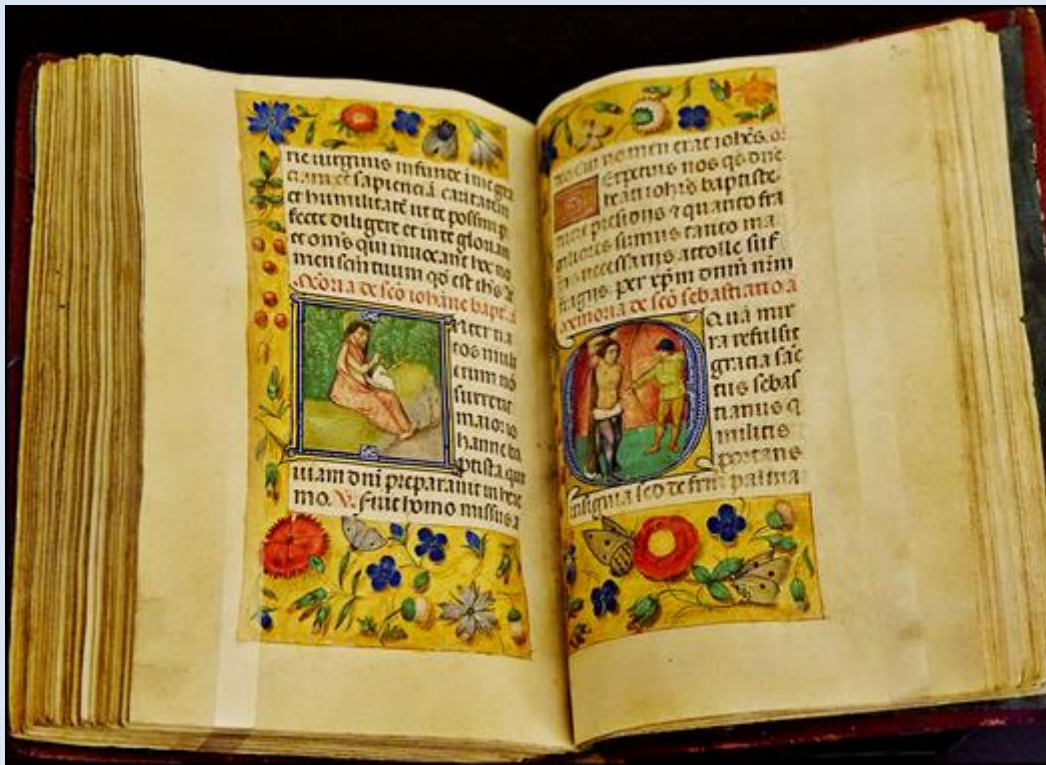 rie virginis infunde in me gra
ciam et sapiencia caritatem
et humilitate ut te possim p
fecte diligere et in te gloriari
et omis qui invocant hoc no
men scm tuum qd est ihs
Memoria de sco iohane bapt.a
Inter na
tos muli
erum no
surrexit
maior io
hanne ba
ptista qui
viam dni preparavit in here
mo. V. fuit homo missus a
deo cui nomen erat iohes. or
erpetuis nos qs dne
beati iohis baptiste
tuere presidiis & quanto fra
giliores sumus tanto ma
gis necessariis attolle suf
fragiis. per xpm dnm nrm
Memoria de sco sebastiano a
O quam mi
ra refulsit
gracia sac
tus sebas
tianus q
militis
portans
insignia sed de frm palma